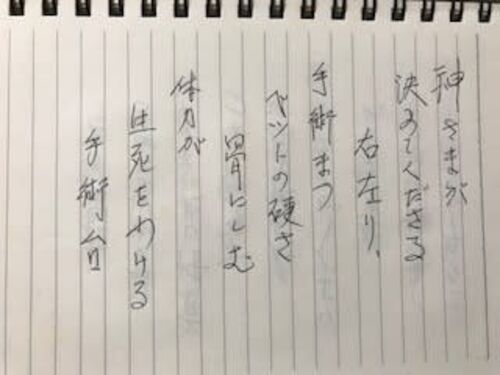 神さまが
決めてくださる
右左り、
手術まつ
ベットの硬さ
骨にしむ
体力が
生死をわける
手術台